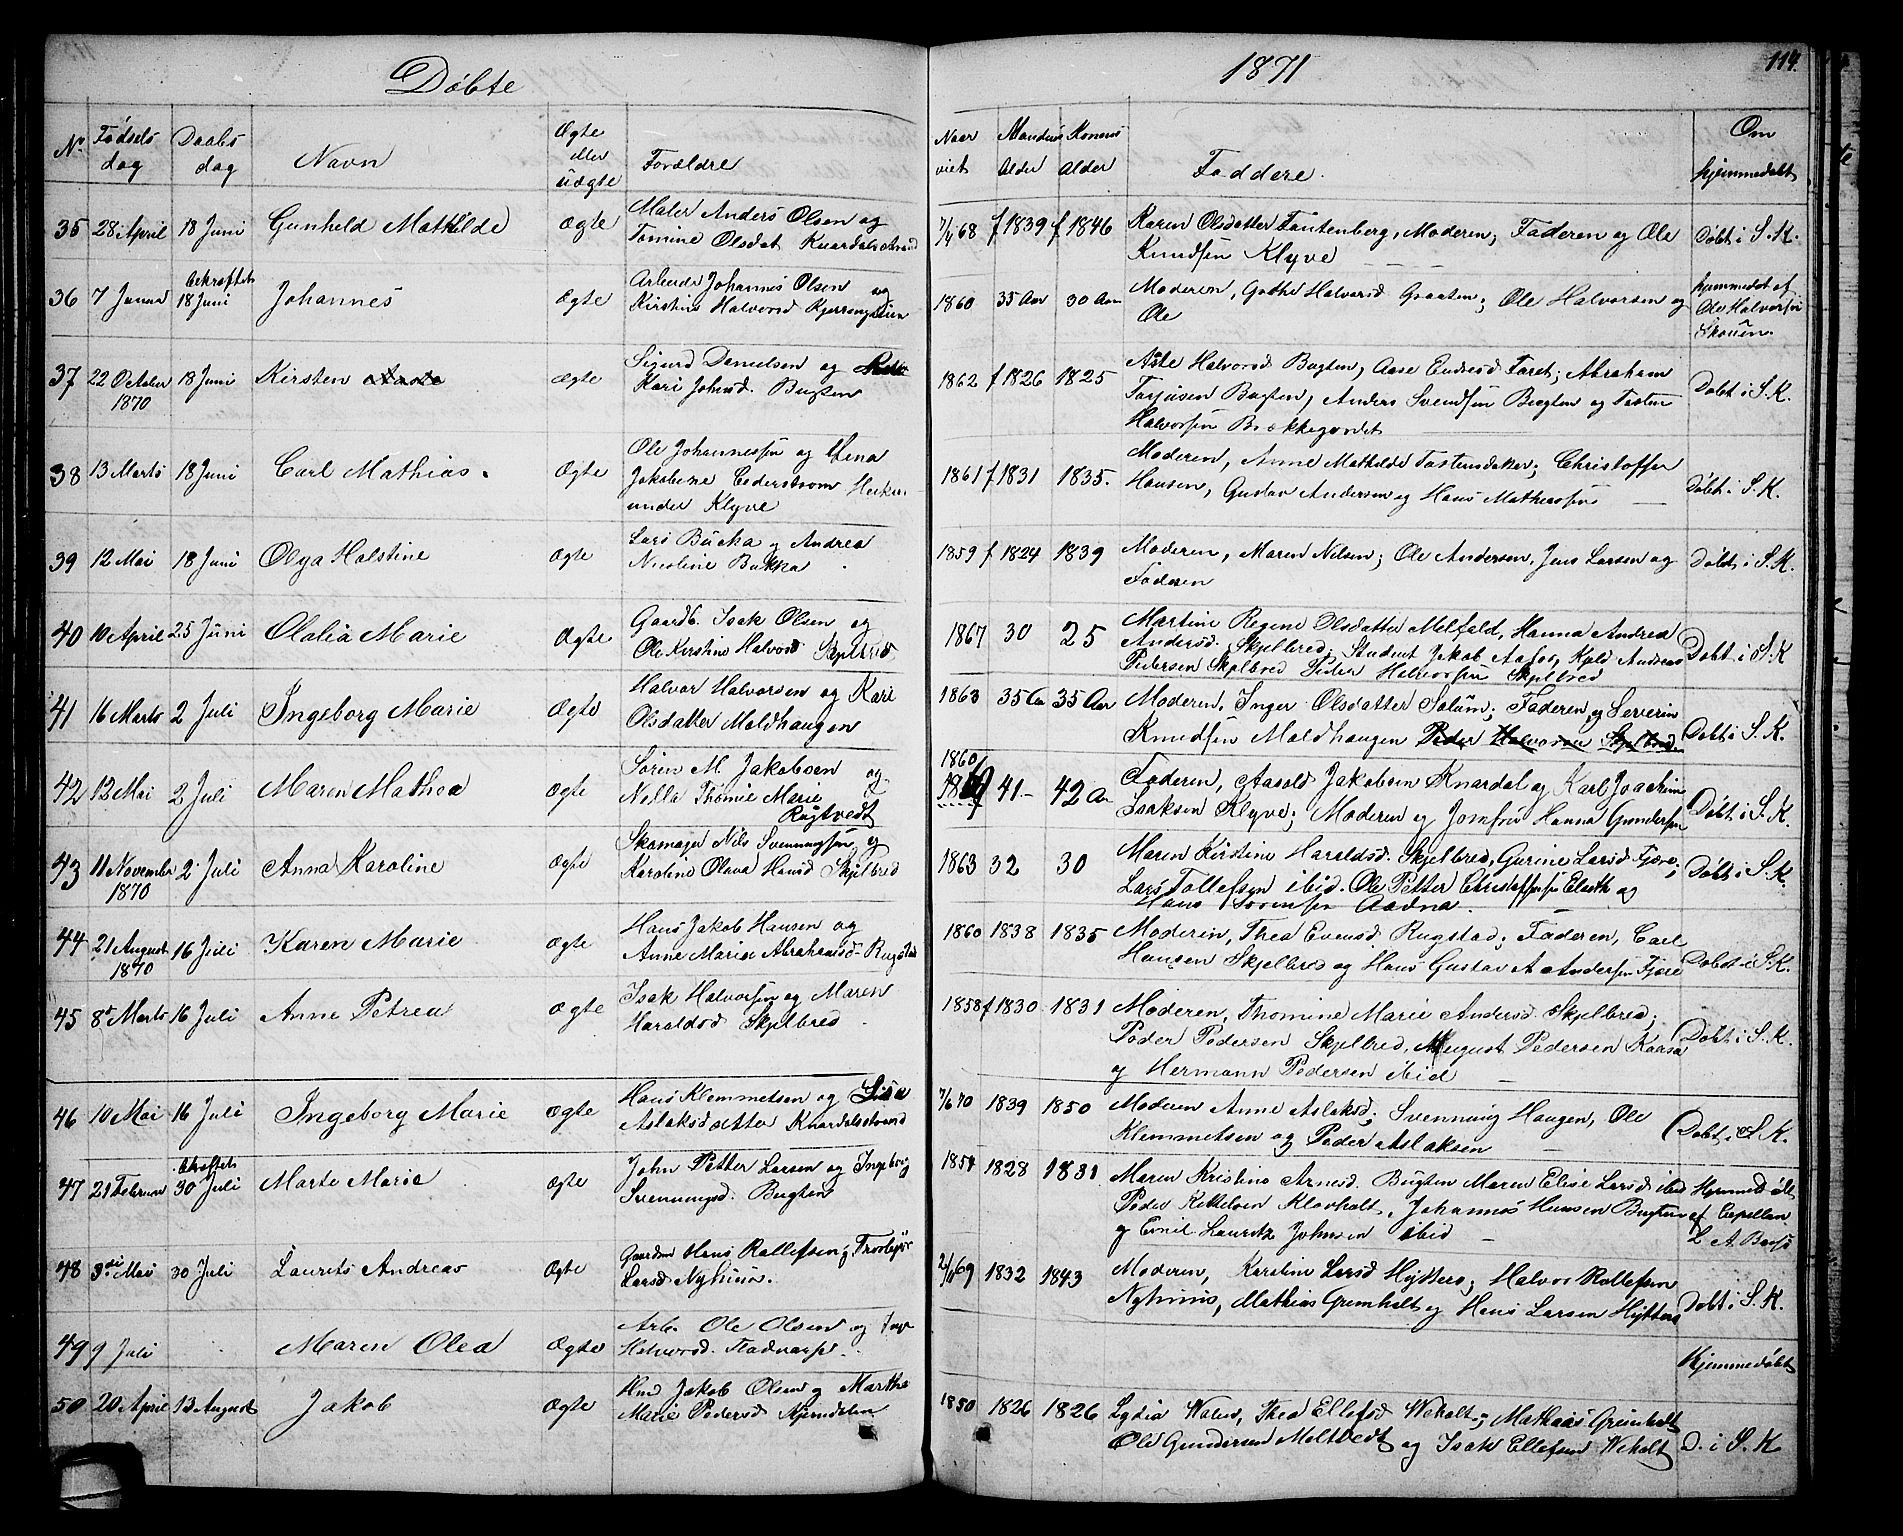 Døbte
1871
114.
No. Fødsels dag Daabs dag Navn Ægte eller uægte Forældre Naar viet Mandens Alder Konens Alder Faddere. Om hjemmedøbt
35 28 April 18 Juni Gunhild Mathilde Ægte Maler Anders Olsen og 7/4 68 f 1839 f 1846 Karen Olsdatter Tautenberg, Moderen; Faderen og Ole Døbt i S. K.
Tomine Olsdat. Knardalsstrand Knudsen Klyve
36 7 Januar bekræftet 18 Juni Johannes Ægte Arbeider Johannes Olsen og 1860 35 Aar 30 Aar Moderen, Grethe Halvorsd Graaten; Ole Halvorsen og hjemmedøbt af
Kirstine Halvorsd Kjerringteien Ole Ole Halvorsen
Skouen.
37 22 October 18 Juni Kirsten Ægte Sigurd Danielsen og 1862 f 1826 1825 Aste Halvorsd Bugten, Aase Endresd Faret; Abraham Døbt i S. K.
1870 Kari Johnsd. Bugten Torjusen Bugten, Anders Svendsen Bugten og Tosten
Halvorsen Brækkegaardet
38 13 Marts 18 Juni Carl Mathias. Ægte Ole Johannessen og Lena 1861 f 1831 1835. Moderen, Anne Mathilde Tostensbakke; Christoffer Døbt i S. K.
Jakobine Cederstrom Hansen, Gustav Andersen og Hans Mathesen
under Klyve
39 12 Mai 18 Juni Olga Halstine Ægte Lars Bucka og Andrea 1859 f 1824 1839 Moderen, Maren Nilsen; Ole Andersen, Jens Larsen og Døbt i S. K.
Nicoline Bukka Faderen
40 10 April 25 Juni Olalia Marie Ægte Gaardb. Isak Olsen og 1867 30 25 Martine Regine Olsdatter Melfald, Hanna Andrea Døbt i S. K
Ole Kirstine Halvorsd Skjelbred Andersd. Skjelbred; Student Jakob Aafos, Kpld Andreas
Pedersen Skjelbred Peder Halvorsen Skjelbred
41 16 Marts 2 Juli Ingeborg Marie Ægte Halvor Halvorsen og Kari 1863 35 Aar 35 Aar Moderen, Inger Olsdatter Solum; Faderen, og Severin Døbt i S. K.
Olsdatter Moldhaugen Knudsen Moldhaugen Peder Halvorsen Skjelbred
42 12 Mai 2 Juli Maren Mathea Ægte Søren M. Jakobsen og 1860 41 – 42 Aar Faderen, Aasold Jakobsen Knardal og Karl Joachim Døbt i S. K.
Nella Thomie Marie Isaksen Klyve; Moderen og Jomfru Hanna Gundersen
Rugtvedt
43 11 November 2 Juli Anna Karoline Ægte Skomager Nils Svenningsen og 1863 32 30 Maren Kirstine Haraldsd. Skjelbred, Gurine Larsd Fjære, Døbt i S. K.
1870 Karoline Olava Hansd Skjelbred Lars Tollefsen ibid. Ole Petter Christoffersen Eleuth og
Hans Sørensen Aadna.
44 21 August 16 Juli Karen Marie Ægte Hans Jakob Hansen og 1860 1838 1835 Moderen, Thea Evensd Rugstad; Faderen, Carl Døbt i S. K.
1870 Anne Maria Abrahamsd. Rugstad Hansen Skjelbred og Hans Gustav A Andersen Fjære
45 8de Marts 16 Juli Anne Petrea Ægte Isak Halvorsen og Maren 1858 f 1830 1831 Moderen, Thomine Marie Andersd. Skjelbred; Døbt i S. K.
Haraldsd Skjelbred Peder Pedersen Skjelbred, August Pedersen Kaasa
og Hermann Pedersen ibid
46 10 Mai 16 Juli Ingeborg Marie Ægte Hans Klemmetsen og Lisa 7/6 70 1839 1850 Moderen Anne Aslaksd; Svennung Haugen, Ole Døbt i S. K.
Aslaksdatter Knardalsstrand Klemmetsen og Peder Aslaksen
47 21 Februar bekræftet 30 Juli Marte Marie Ægte John Petter Larsen og Ingeborg 1854 1828 1831 Maren Kristine Arnesd. Bugten Maren Elise Larsd ibid Hjemmedøbt
Svenningsd. Bugten Peder Kittelsen Klovholt, Johannes Hansen Bugten af Capellan
og Emil Lauritz Johnsen ibid L. A. Barse
48 3die Mai 30 Juli Laurits Andreas Ægte Gaardm Hans Rollefsen og Torbjør 2/11 69 1832 1843 Moderen, Karoline Larsd Hytteros; Halvor Rollefsen Døbt i S. K.
Larsd Nyhuus. Nyhuus, Mathias Grimholt og Hans Larsen Hytteros
49 9 Juli Maren Olea Ægte Arb. Ole Olsen og Inge Hjemmedøbt
Halvorsd.
50 20 April 13 August Jakob Ægte Hmd Jakob Olsen og Marthe 1850 1826 1826 Lydia Waleu, Thea Ellefsd Weholt; Mathias Grimholt D. i S. K
Marie Pedersd Gjemdalen Ole Gundersen Meltvedt og Isak Ellefsen Weholt